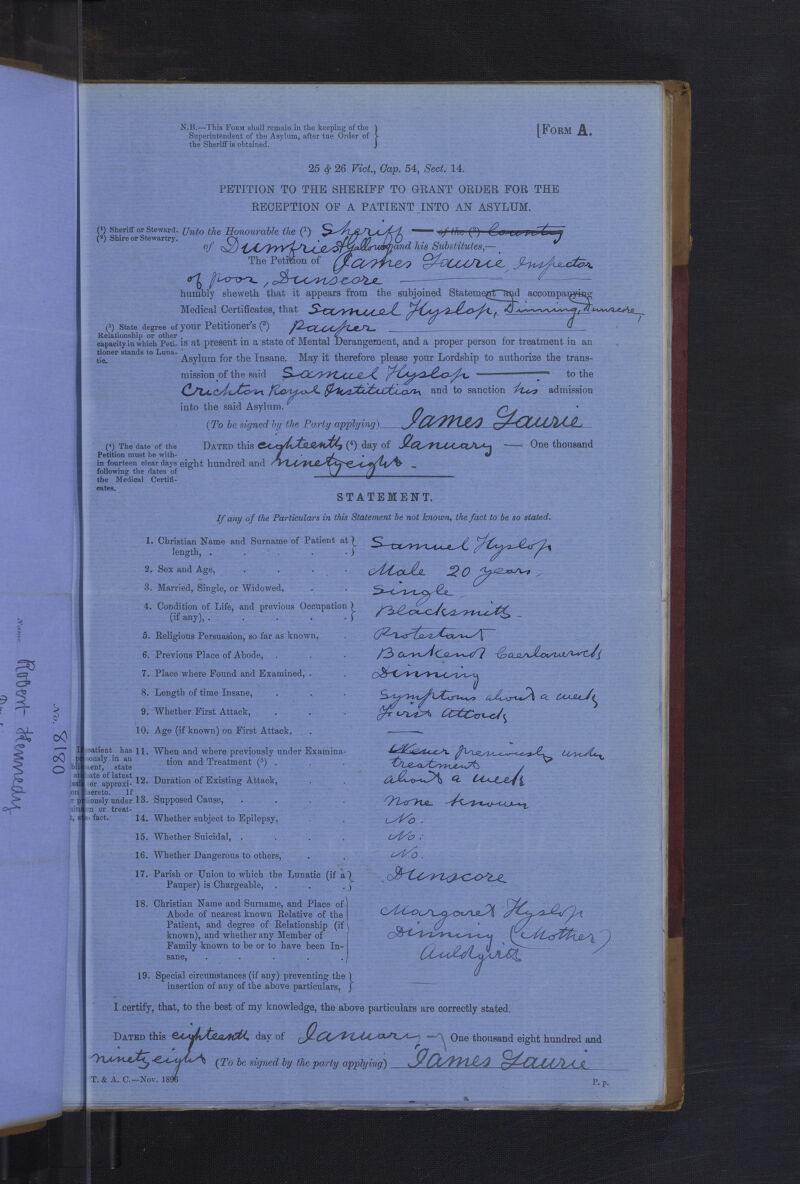 N.B.—This Form shall remain in the keeping of the
Superintendent of the Asylum, after the Order of
the Sheriff is obtained.
[Form A.
25 & 26 Vict., Cap. 54, Sect. 14.
PETITION TO THE SHERIFF TO GRANT ORDER FOR THE
RECEPTION OF A PATIENT INTO AN ASYLUM.
(1) Sheriff or Steward.
(2) Shire or Stewartry.
Unto the Honourable the (1) Sheriff — of the (2) County
of Dumfries & Galloway and his Substitutes,—
The Petition of James Laurie, Inspector
of poor, Dunscore
humbly sheweth that it appears from the subjoined Statement and accompanying
Medical Certificates, that Samuel Hyslop, Dinning, Dunscore,
(3) State degree of
Relationship or other
capacity in which Peti-
tioner stands to Luna-
tic.
your Petitioner's (3) Pauper
is at present in a state of Mental Derangement, and a proper person for treatment in an
Asylum for the Insane. May it therefore please your Lordship to authorize the trans-
mission of the said Samuel Hyslop — to the
Crichton Royal Institution and to sanction his admission
into the said Asylum.
(To be signed by the Party applying) James Laurie
(4) The date of the
Petition must be with-
in fourteen clear days
following the dates of
the Medical Certifi-
cates.
Dated this eighteenth (4) day of January — One thousand
eight hundred and ninety eight -
STATEMENT.
If any of the Particulars in this Statement be not known, the fact to be so stated.
1. Christian Name and Surname of Patient at
length, . Samuel Hyslop
2. Sex and Age, Male 20 years.
3. Married, Single, or Widowed, Single.
4. Condition of Life, and previous Occupation
(if any), . Blacksmith -
5. Religious Persuasion, so far as known, Protestant
6. Previous Place of Abode, Bankend Caerlaverock
7. Place where Found and Examined, Dinning
8. Length of time Insane, Symptoms about a week
9. Whether First Attack, First Attack
10. Age (if known) on First Attack, —
If patient has
11. When and where previously under Examina-
tion and Treatment (5) Never previously under
treatment
12. Duration of Existing Attack, about a week
13. Supposed Cause, none known
14. Whether subject to Epilepsy, No.
15. Whether Suicidal, No.
16. Whether Dangerous to others, No.
17. Parish or Union to which the Lunatic (if a
Pauper) is Chargeable, Dunscore
18. Christian Name and Surname, and Place of
Abode of nearest known Relative of the
Patient, and degree of Relationship (if
known), and whether any Member of
Family known to be or to have been In-
sane,
Margaret Hyslop
Dinning (Mother)
Auldgirth
19. Special circumstances (if any) preventing the
insertion of any of the above particulars, —
I certify, that, to the best of my knowledge, the above particulars are correctly stated.
Dated this eighteenth day of January — One thousand eight hundred and
ninety eight (To be signed by the party applying) James Laurie
T. & A. C.—Nov. 1896
P. p.
No. 8180
Name Robert Kennedy